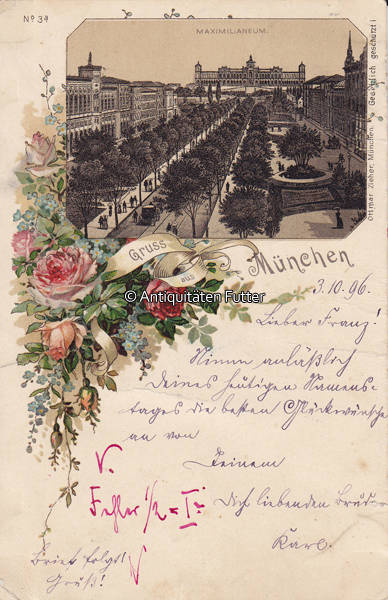 No 34
MAXIMILIANEUM.
Ottmar Zieher, München. Gesetzlich geschützt!
Gruss aus
München
© Antiquitäten Futter
3.10.96.
Lieber Franz!
Nimm anläßlich
Deines heutigen Namens-
tages die besten Glückwünsche
an von
Deinem
V.
Fehler 1/2 = I
Dich liebenden Bruder
Karl.
Brief folgt!
Gruß!